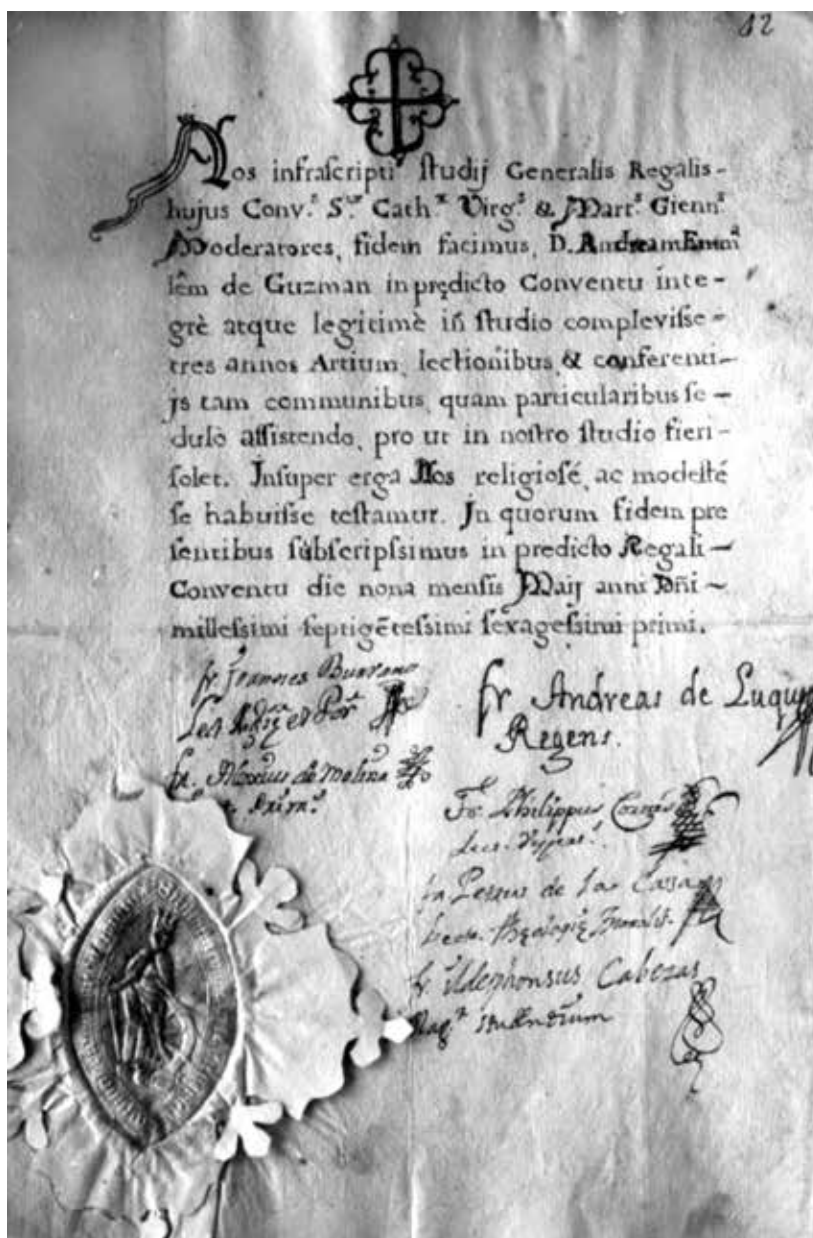 82
Nos infrascripti studij Generalis Regalis-
hujus Conv.s S.ae Cath.ae Virg.s & Mart.s Gienn.s
Moderatores, fidem facimus, D. Andream
lẽm de Guzman in prędicto Conventu inte-
grè atque legitimè in studio complevisse-
tres annos Artium, lectionibus, & conferenti-
js tam communibus, quam particularibus se-
dulò assistendo, pro ut in nostro studio fieri-
solet. Insuper erga Nos religiosé, ac modesté
se habuisse testamur. In quorum fidem pre
sentibus subscripssimus in predicto Regali-
Conventu die nona mensis Maij anni Dñi-
millessimi septigẽtessimi sexagessimi primi.
fr. Joannes
fr. Andreas de Luque
Regens.
de Molina
Fr. Philippus
fr. Petrus de la Casa
Lect. Theologię Moralis.
fr. Ildephonsus Cabezas
Mag.r studentium